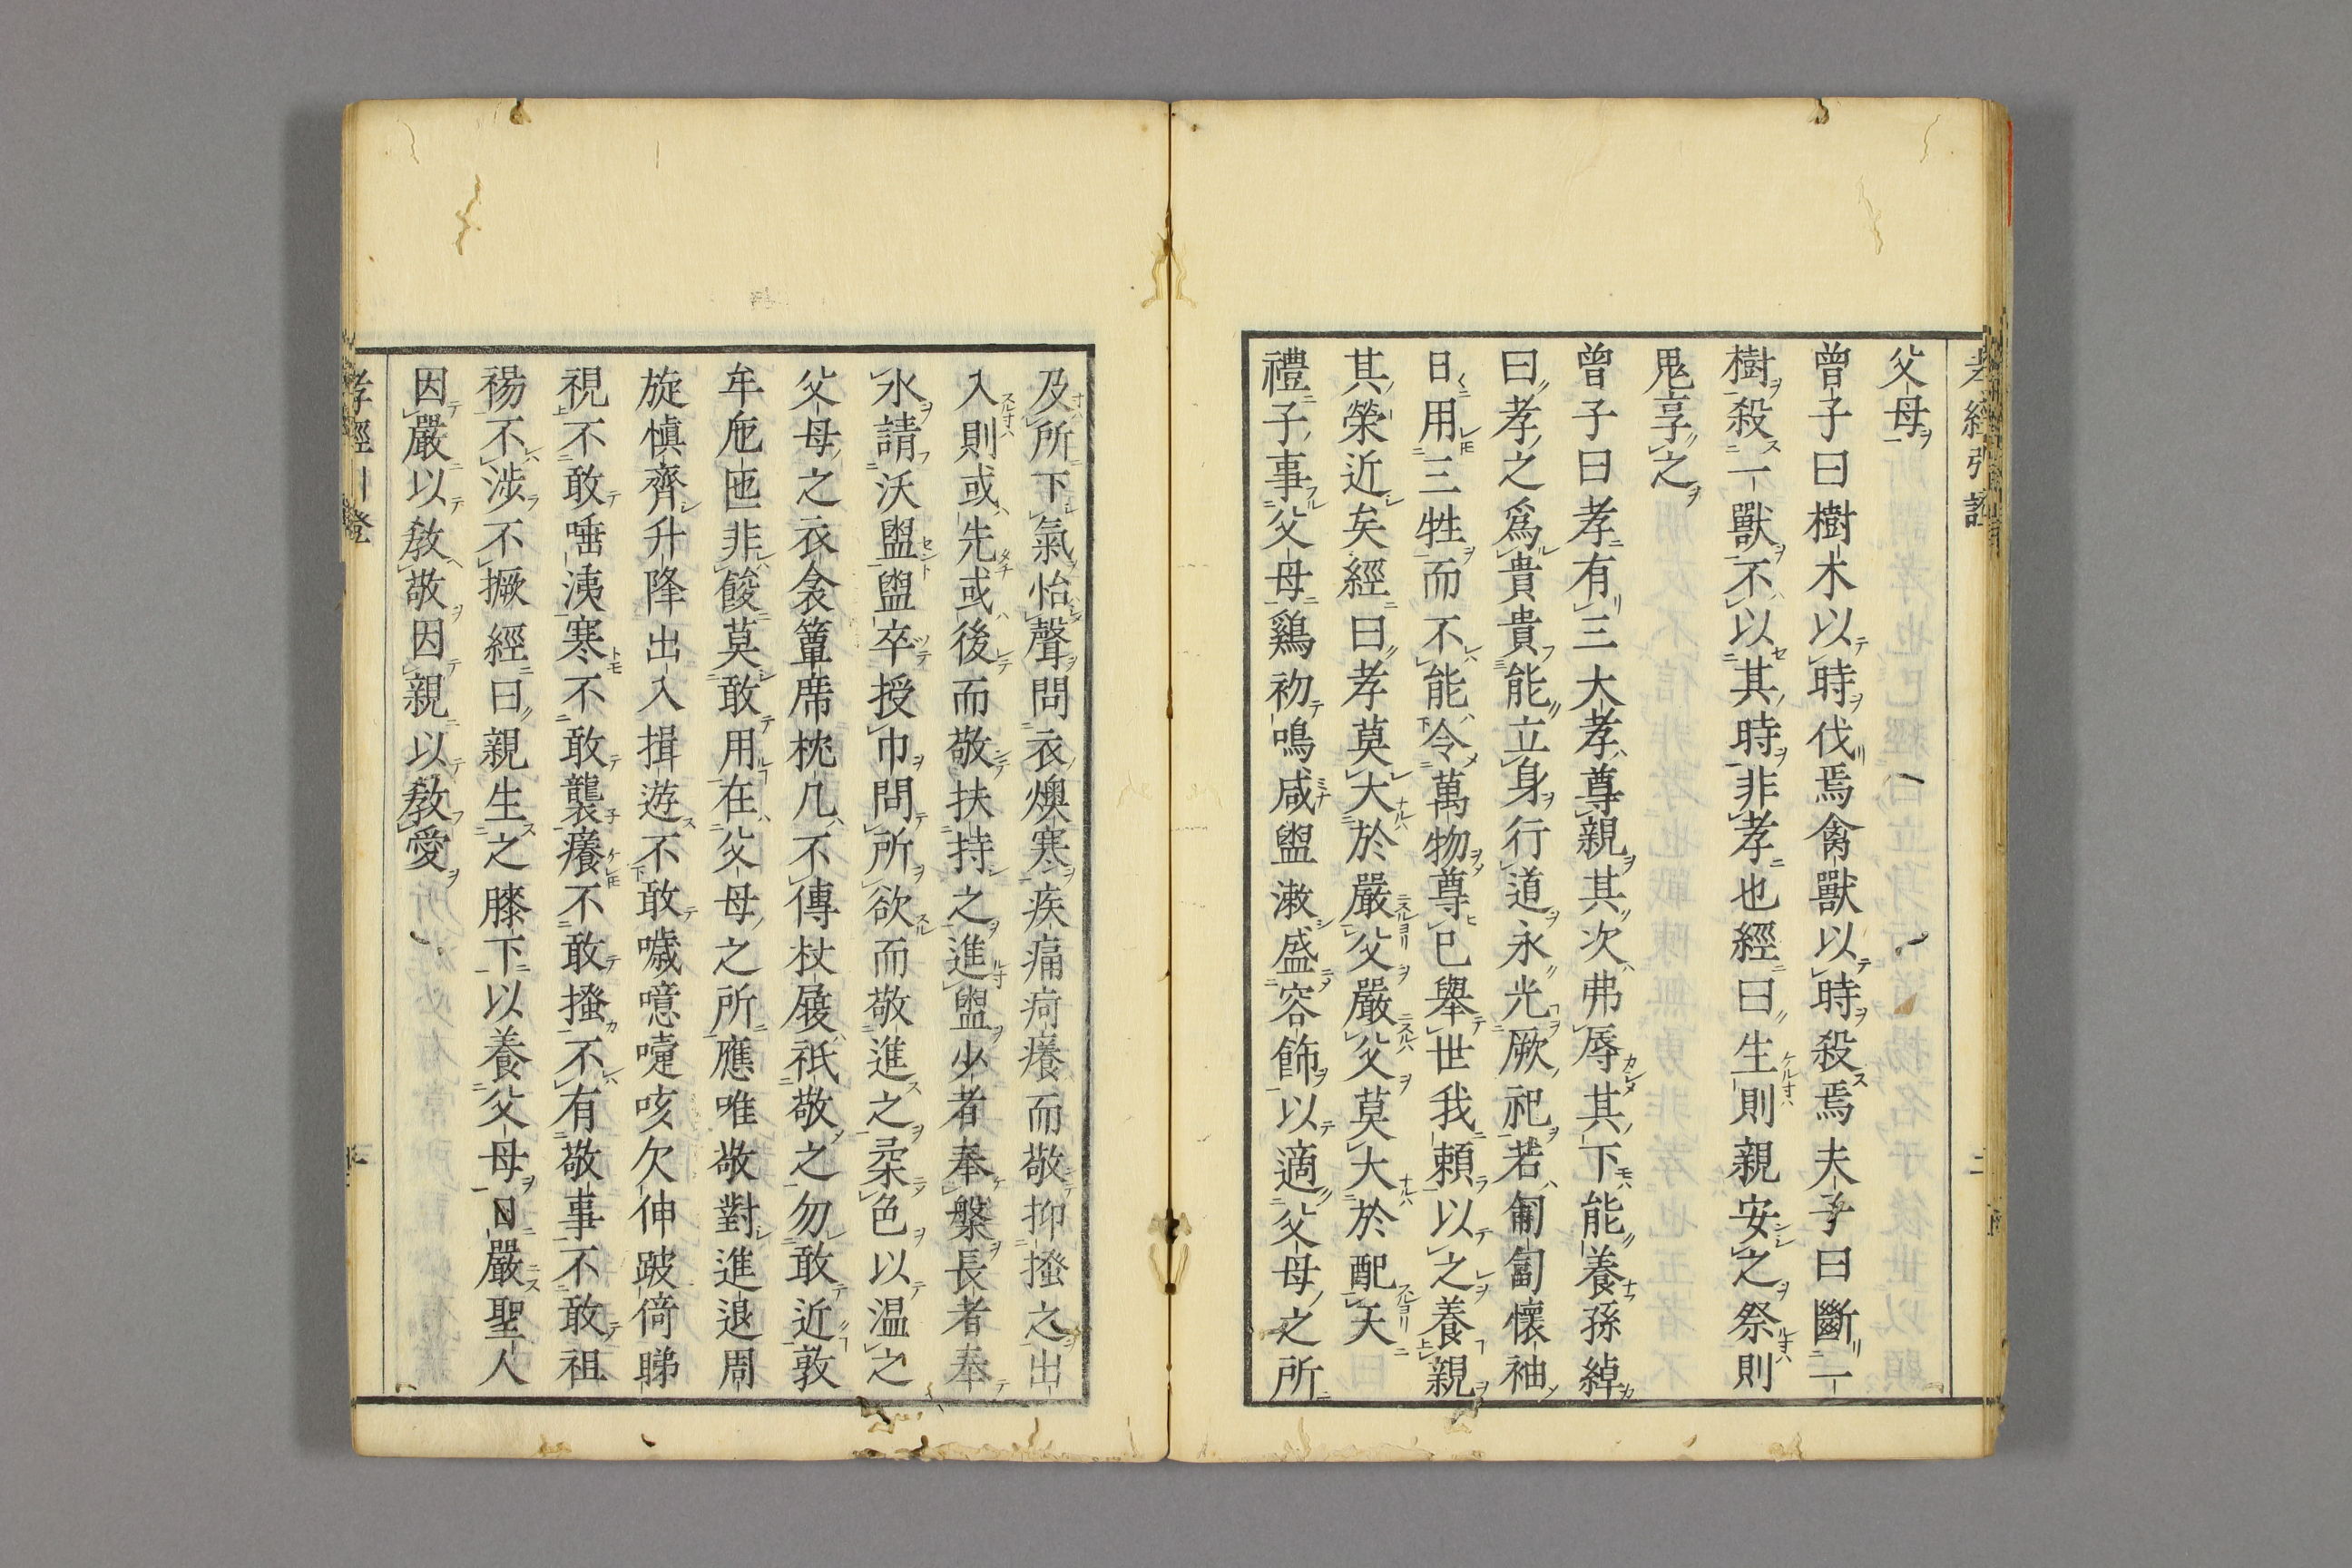 父母
曾子曰樹木以時伐焉禽獸以時殺焉夫子曰斷一
樹殺一獸不以其時非孝也經曰生則親安之祭則
鬼享之
曾子曰孝有三大孝尊親其次弗辱其下能養孫綽
曰孝之爲貴貴能立身行道永光厥祀若匍匐懷袖
日用三牲而不能令萬物尊己舉世我頼以之養親
其榮近矣經曰孝莫大於嚴父嚴父莫大於配天
禮子事父母鷄初鳴咸盥漱盛容飾以適父母之所
及所下氣怡聲問衣燠寒疾痛疴癢而敬抑搔之出
入則或先或後而敬扶持之進盥少者奉槃長者奉
水請沃盥盥卒授巾問所欲而敬進之柔色以温之
父母之衣衾簟席枕几不傳杖屨祇敬之勿敢近敦
牟巵匜非餕莫敢用在父母之所應唯敬對進退周
旋慎齊升降出入揖遊不敢噦噫嚏咳欠伸跛倚睇
視不敢唾洟寒不敢襲癢不敢搔不有敬事不敢袒
裼不涉不撅經曰親生之膝下以養父母日嚴聖人
因嚴以敎敬因親以敎愛